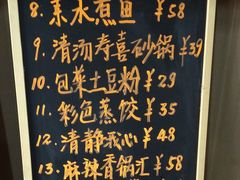 8. 东水煮鱼 ¥58
9. 清汤寿喜砂锅 ¥39
10. 包菜土豆粉 ¥29
11. 彩色蒸饺 ¥35
12. 清静我心 ¥48
13. 麻辣香锅汇 ¥58